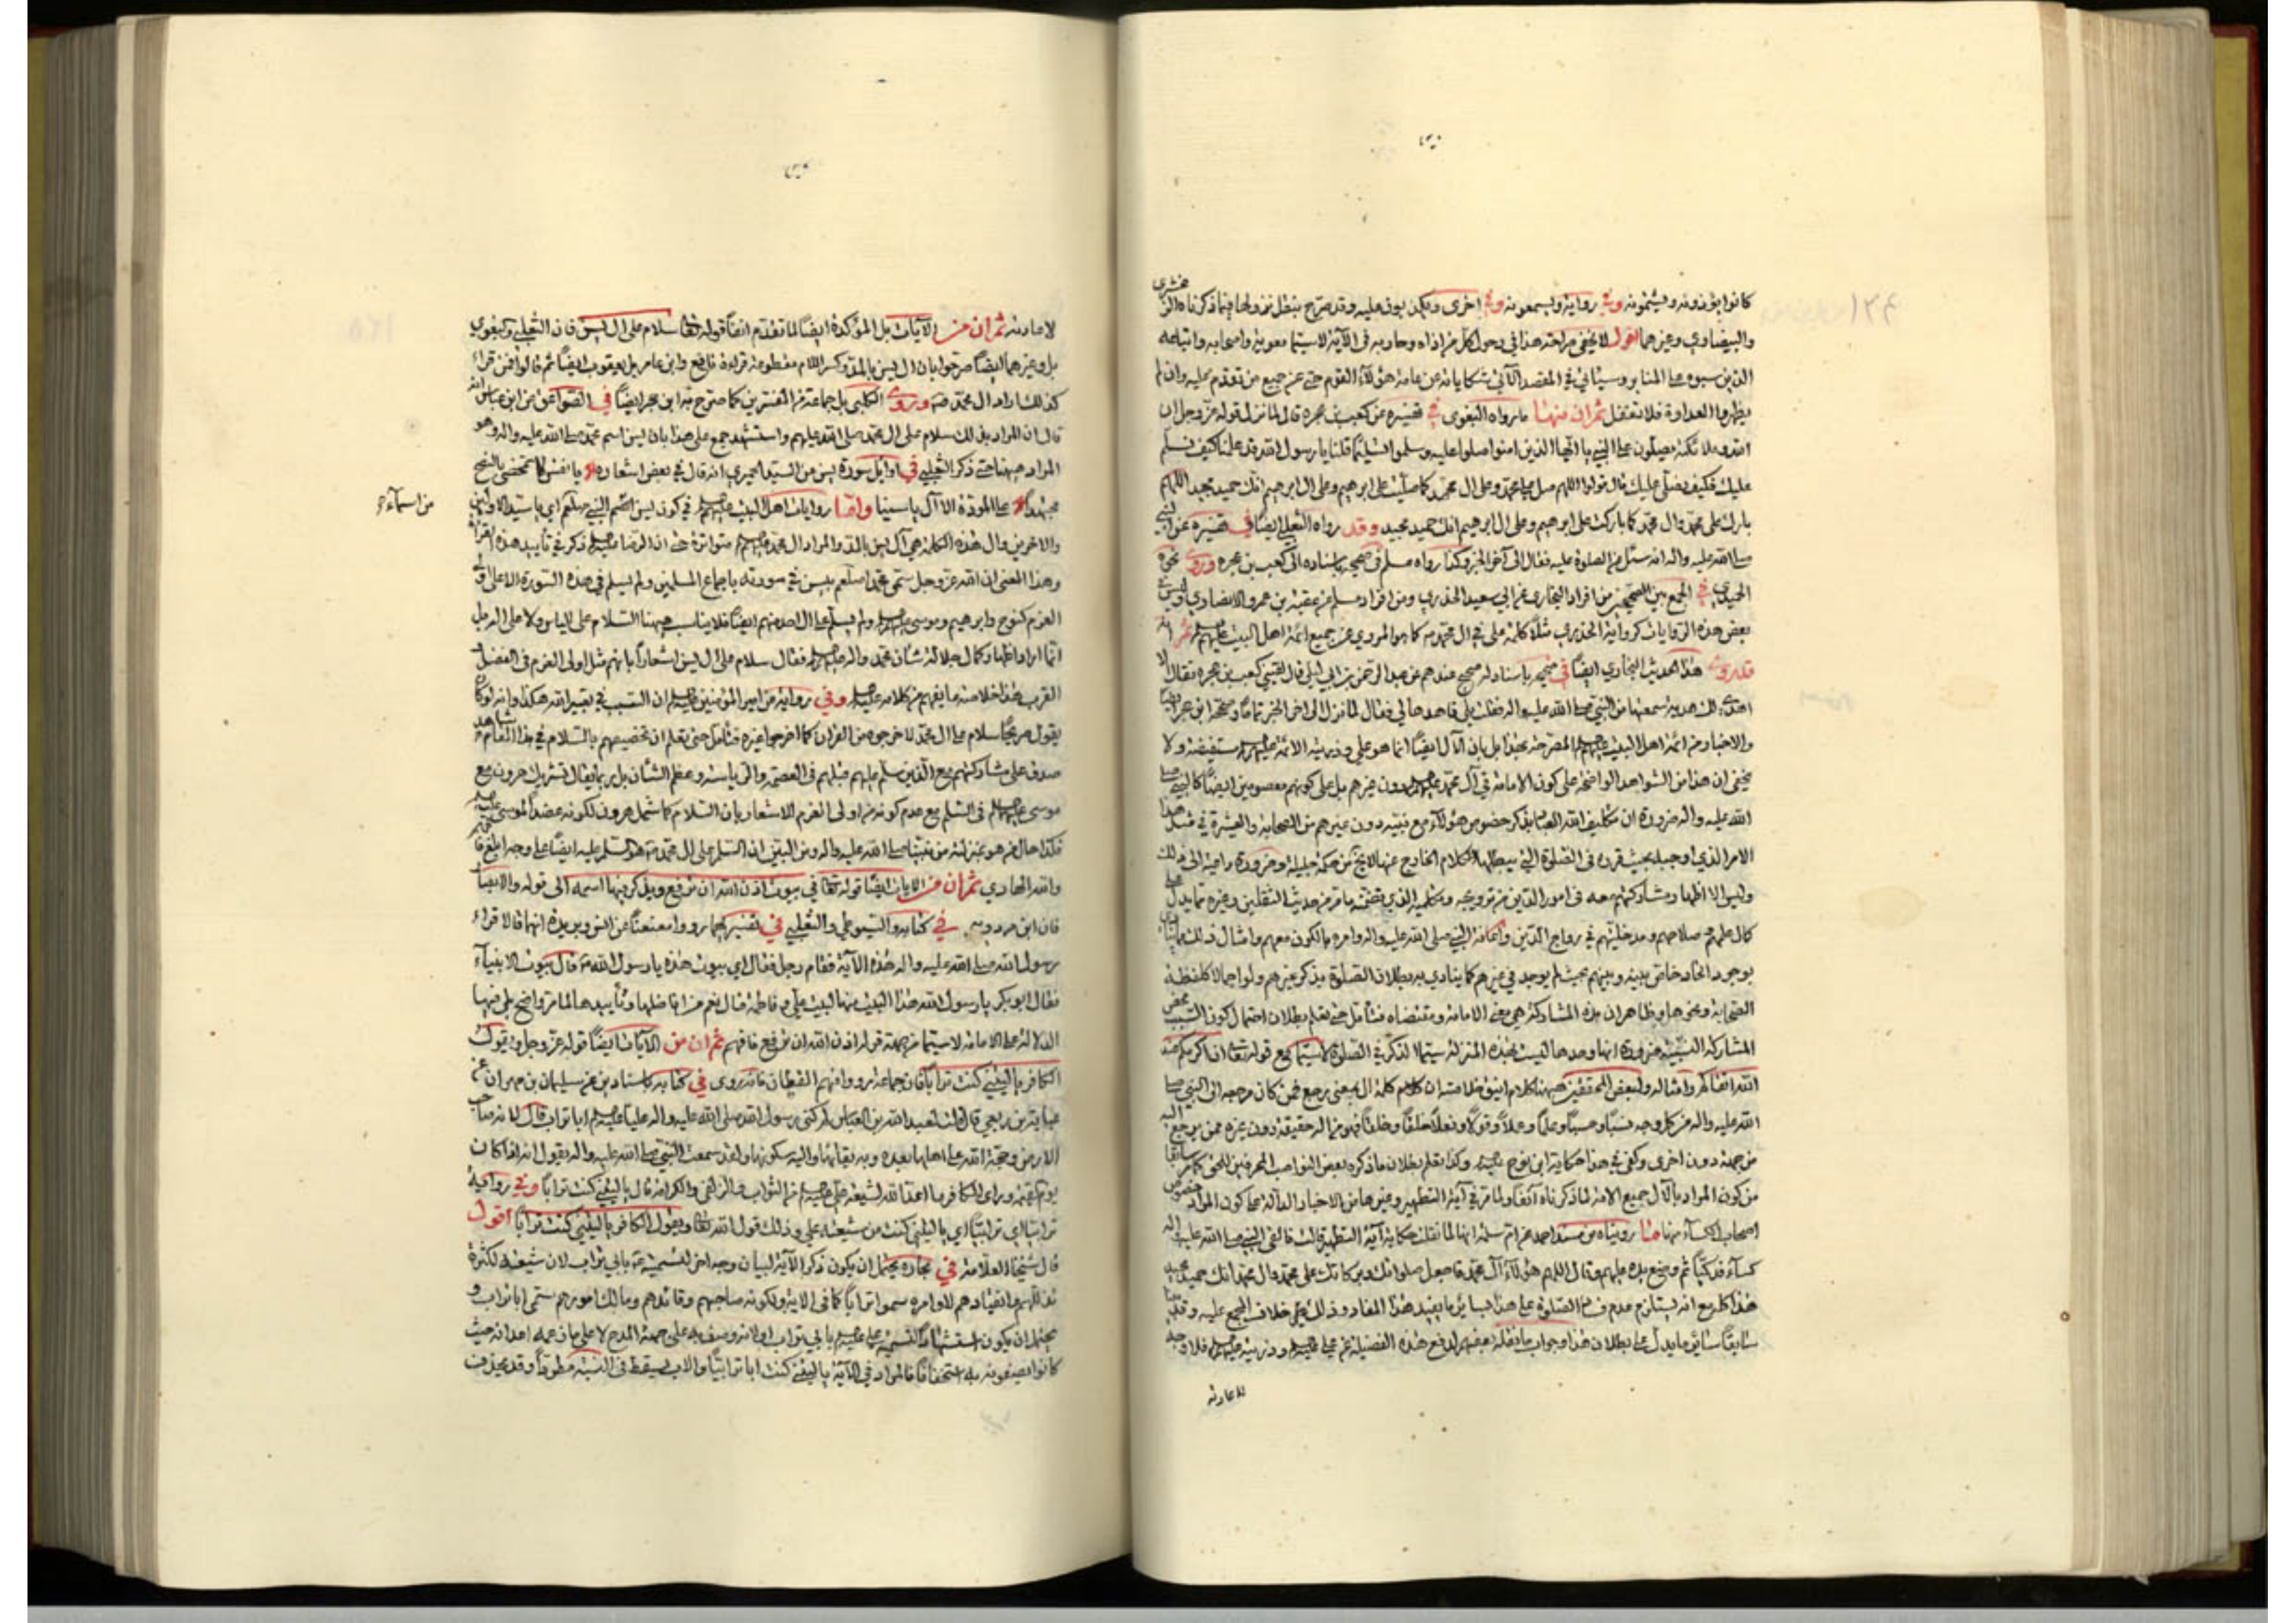 كانوا يؤذونه ويشتمونه وفي رواية ويسمعونه وفي اخرى ويكذبون عليه وقد صرح بنطل نزولها فيما ذكرناه الز
مخشري
والبيضاوي وغيرهما اقول لا يخفى صراحة هذا في دخول كل من اذاه وحاربه في الآية لا سيما معوية واصحابه واتباعه
الذين سبوه على المنابر وسيأتي في المقصد الآتي شكاياته عن عامة هؤلاء القوم حتى عن جميع من تقدم عليه وان لم
يظهروا العداوة فلا تغفل ثم ان منها ما رواه البغوي في تفسيره عن كعب بن عجرة قال لما نزل قوله عز وجل ان
الله وملائكته يصلون على النبي يا ايها الذين امنوا صلوا عليه وسلموا تسليما قلنا يا رسول الله قد علمنا كيف نسلم
عليك فكيف نصلي عليك قال قولوا اللهم صل على محمد وعلى ال محمد كما صليت على ابرهيم وعلى ال ابرهيم انك حميد مجيد اللهم
بارك على محمد وال محمد كما باركت على ابرهيم وعلى ال ابرهيم انك حميد مجيد وقد رواه الثعلبي ايضا في تفسيره عن النبي
صلى الله عليه واله انه سئل عن الصلوة عليه فقال الى آخر الخبر وكذا رواه مسلم في صحيحه باسناده الى كعب بن عجرة وروى نحوه
الحميدي في الجمع بين الصحيحين من افراد البخاري عن ابي سعيد الخدري ومن افراد مسلم عن عقبة بن عمرو الانصاري وليس في
بعض هذه الروايات كرواية الخدري مثلا كلمة على في ال محمد كما هو المروي عن جميع ائمة اهل البيت عليهم ثم انه
قد روى هذا الحديث البخاري ايضا في صحيحه باسناد له صحيح عندهم عن عبد الرحمن بن ابي ليلى قال لقيني كعب بن عجرة فقال الا
اهدي لك هدية سمعتها من النبي صلى الله عليه واله فقلت بلى فاهدها لي فقال لما نزل الى اخر الخبر تماما وصححه ابن حجر ايضا
والاخبار من ائمة اهل البيت عليهم المصرحة بهذا بل بان الآل ايضا انما هو علي وذريته الائمة عليهم مستفيضة ولا
يخفى ان هذا من الشواهد الواضحة على كون الامامة في آل محمد عليهم دون غيرهم بل على كونهم معصومين ايضا كالنبي صلى
الله عليه واله ضرورة ان تكليف الله العباد بذكر خصوص هؤلاء مع نبيه دون غيرهم من الصحابة والعشيرة في مثل هذا
الامر الذي اوجبه بحيث قرره في الصلوة التي يبطلها الكلام الخارج عنها لا يخ من حكمة جليلة وضرورة داعية الى ذلك
وليس الا اظهار مشاركتهم معه في امور الدين من ترويجه وتعليمه الذي تضمنه ما مر من حديث الثقلين وغيره مما يدل على
كمال علمهم وصلاحهم ومدخليتهم في رواج الدين واعانة النبي صلى الله عليه واله وامره بالكون معهم وامثال ذلك
بوجود اتحاد خاص بينه وبينهم بحيث لم يوجد في غيرهم كما ينادي به بطلان الصلوة بذكر غيرهم ولو اجمالا كلفظة
الصحابة ونحوها وظاهر ان هذه المشاركة هي معنى الامامة ومقتضاه فتأمل حتى تعلم بطلان احتمال كون السبب محض
المشاركة النسبية ضرورة انها وحدها ليست بهذه المنزلة سيما الذكر في الصلوة لا سيما مع قوله تعالى ان اكرمكم عند
الله اتقاكم وامثاله ولبعض المحققين هيهنا كلام انيق خلاصته ان كلمة ال بمعنى رجع فمن كان مرجعه الى النبي صلى
الله عليه واله من كل وجه نسبا وحسبا وعلما وعملا وقولا وفعلا خلقا وخلقا فهو من اله حقيقة دون غيره ممن يرجع اليه
من جهة دون اخرى وكفى في هذا حكاية ابن نوح وكذا تعلم بطلان ما ذكره بعض النواصب المحرفين للحق كما مر سابقا
من كون المراد بالآل جميع الامة لما ذكرناه آنفا ولما مر في آية التطهير وغيرها من الاخبار الدالة على كون المراد خصوص
اصحاب الكساء منها ما رويناه من مسند احمد عن ام سلمة انها لما نقلت حكاية آية التطهير قالت فالقى النبي صلى الله عليه واله
كساء فدكيا ثم وضع يده عليهم وقال اللهم هؤلاء آل محمد فاجعل صلواتك وبركاتك على محمد وال محمد انك حميد مجيد
هذا كله مع انه يستلزم عدم الصلوة على هذا بسائر ما يفيد هذا المفاد وذلك خلاف المجمع عليه وقد
سابقا ما يدل على بطلان هذا وجواب ما نقله بعضهم لدفع هذه الفضيلة عن علي وذريته فلا وجه
للاعادة
لاعادته ثم ان من الآيات بل المؤكدة ايضا لما تقدم انفا قوله تعالى سلام على ال يس فان الثعلبي والبغوي
بل وغيرهما ايضا صرحوا بان ال يس بالمد وكسر اللام مقطوعة قراءة نافع وابن عامر بل يعقوب ايضا ثم قالوا فمن قراء
كذلك اراد ال محمد وروى الكلبي بل جماعة من المفسرين كما صرح به ابن حجر ايضا في الصواعق عن ابن عباس انه
قال ان المراد بذلك سلام على ال محمد صلى الله عليهم واستشهد جمع على هذا بان يس اسم محمد صلى الله عليه واله وهو
المراد هيهنا حتى ذكر الثعلبي في اوائل سورة يس من السيد الحميري انه قال في بعض اشعاره يا نفس لا تمحضي بالنصح
مجتهدا على المودة الا آل ياسينا واما روايات اهل البيت عليهم في كون يس اسم النبي صلعم اي يا سيد الاولين
من اسماء
والاخرين وال هذه الكلمة هي آل يس بالمد والمراد ال محمد متواترة حتى ان الرضا ذكر في تأييد هذه القراءة
وهذا المعنى ان الله عز وجل سمى محمدا صلعم بيس في سورته باجماع المسلمين ولم يسلم في هذه السورة الا على اولي
العزم كنوح وابرهيم وموسى ولم يسلم على ال احد منهم ايضا فلا يناسب هيهنا السلام على الياس ولا على اله بل
انما اراد اظهار كمال جلالة شأن محمد واله فقال سلام على ال يس اشعارا بانهم مثل اولى العزم في الفضل
القرب هذا خلاصة ما يفهم من كلامه وفي رواية عن امير المؤمنين ان السبب في تعبير الله هكذا وانه لو كان
يقول صريحا سلام على ال محمد لاخرجوه من القران كما اخرجوا غيره فتأمل حتى تعلم ان تخصيصهم بالسلام في هذا المقام شاهد
صدق على مشاركتهم مع الذين سلم عليهم مثلهم في العصمة والرياسة وعظم الشأن بل ربما يقال تشريك هرون مع
موسى في السلم مع عدم كونه من اولى العزم للاشعار بان السلام كما شمل هرون لكونه عضدا لموسى
فكذا حال من هو بمنزلته من نبينا صلى الله عليه واله ومن البين ان السلم على ال محمد هو السلم عليه ايضا على وجه ابلغ
والله الهادي ثم ان من الايات ايضا قوله تعالى في بيوت اذن الله ان ترفع ويذكر فيها اسمه الى قوله والابصار
فان ابن مردويه في كتابه والسيوطي والثعلبي في تفسيرهما رووا معنعنا عن انس وبريدة انهما قالا قراء
رسول الله صلى الله عليه واله هذه الآية فقام رجل فقال اي بيوت هذه يا رسول الله قال بيوت الانبياء
فقال ابو بكر يا رسول الله هذا البيت منها لبيت علي وفاطمة قال نعم من افاضلها وتأييدها لما مر واضح بل فيها
الدلالة على الامامة لا سيما من جهة قوله اذن الله ان ترفع فافهم ثم ان من الآيات ايضا قوله عز وجل ويقول
الكافر يا ليتني كنت ترابا فان جماعة رووا منهم القطان فانه روى في كتابه باسناده عن سليمان بن مهران عن
عباية بن ربعي قال قلت لعبد الله بن العباس لم كنى رسول الله صلى الله عليه واله عليا ابا تراب قال لانه صاحب
الارض وحجة الله على اهلها بعده وبه بقاؤها واليه سكونها ولقد سمعت النبي صلى الله عليه واله يقول انه اذا كان
يوم القيمة وراى الكافر ما اعد الله لشيعة علي من الثواب والزلفى والكرامة قال يا ليتني كنت ترابا وفي رواية
ترابيا اي يا ليتني كنت من شيعة علي وذلك قول الله تعالى ويقول الكافر يا ليتني كنت ترابا اقول
قال شيخنا العلامة في بحاره يحتمل ان يكون ذكر الآية لبيان وجه اخر للتسمية بابي تراب لان شيعته لكثرة
تذللهم وانقيادهم لاوامره سموا ترابا كما في الاية ولكونه صاحبهم وقائدهم ومالك امورهم سمى ابا تراب و
يحتمل ان يكون استشهادا لتسميته بابي تراب او لانه وصف به على جهة المدح لا على ما زعمه اعداؤه حيث
كانوا يصفونه به استخفافا فالمراد في الآية يا ليتني كنت ابا ترابيا والاب يسقط في النسبة مطردا وقد يحذف